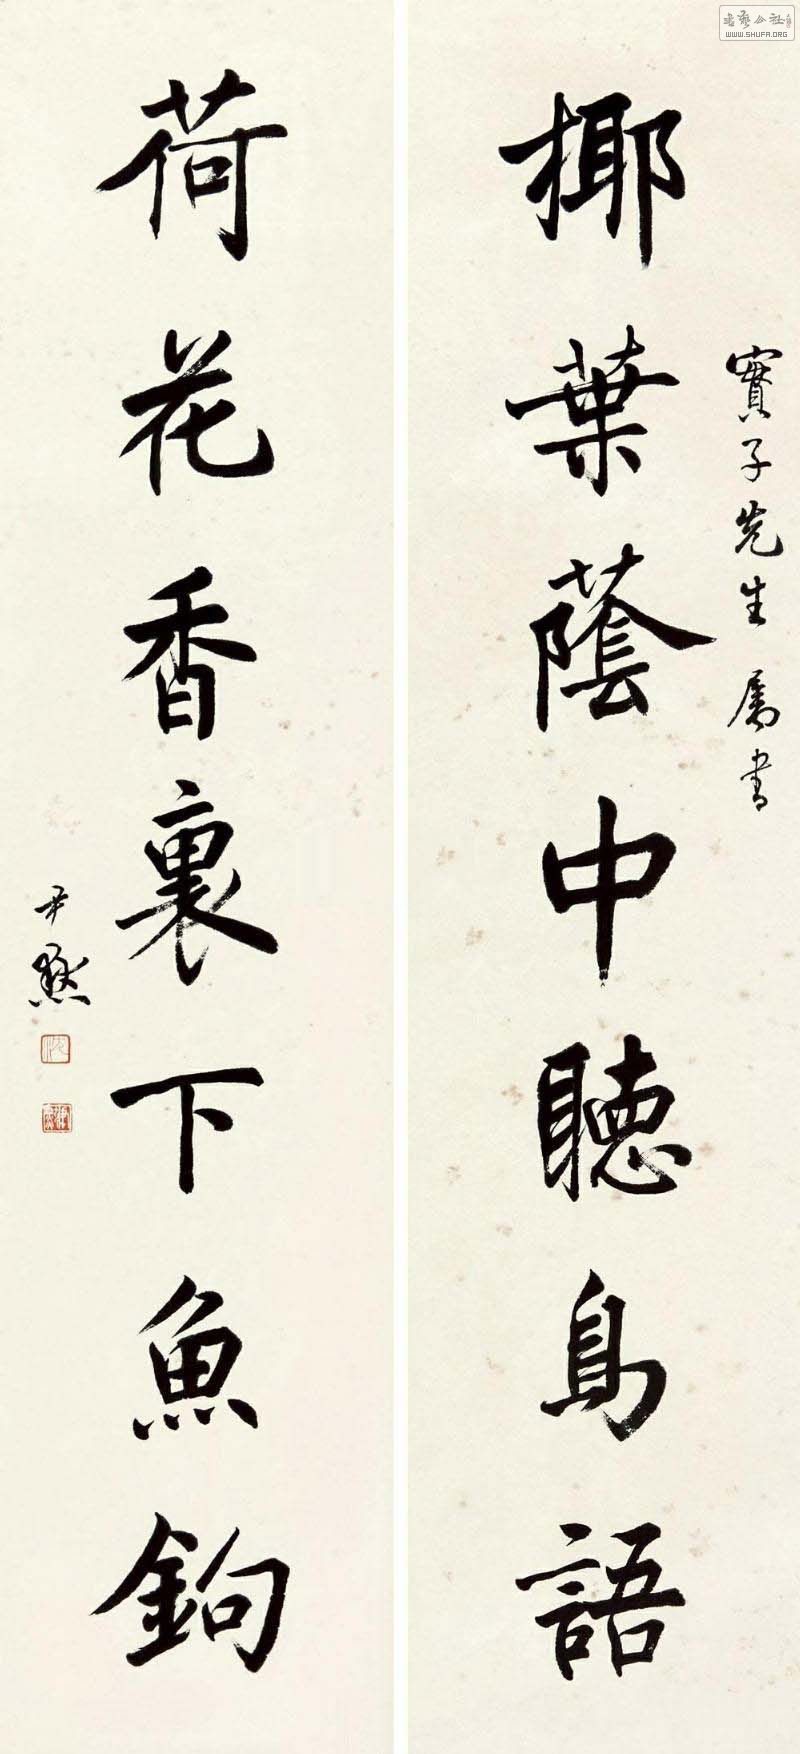 實子先生屬書
椰葉蔭中聽鳥語
荷花香裏下魚鉤
尹默
沈
WWW.SHUFA.ORG